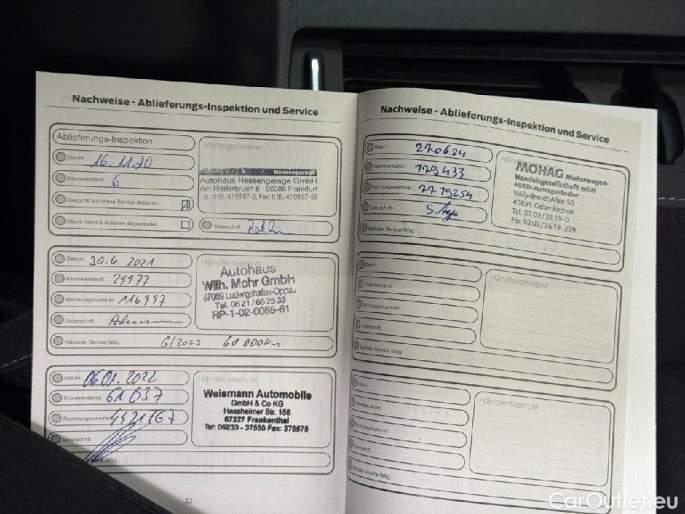 Nachweise - Ablieferungs-Inspektion und Service
Ablieferungs-Inspektion
Datum: 16.11.20
Kilometerstand: 6
Unterschrift:
Hessengarage
Autohaus Hessengarage GmbH
Datum: 30.6 2021
Kilometerstand: 29977
Rechnungsnummer: 116997
Unterschrift:
Nächster Service fällig: 6/2023 60000km
Händlerstempel
Autohaus
Wilh. Mohr GmbH
67069 Ludwigshafen-Oppau
Tel. 06 21 / 65 25 33
RP-1-02-0085-61
Datum: 06.01.2022
Kilometerstand: 61037
Rechnungsnummer: 4421767
Händlerstempel
Weismann Automobile
GmbH & Co KG
Hessheimer Str. 155
67227 Frankenthal
Tel: 06233 - 37550 Fax: 375575
32
Nachweise - Ablieferungs-Inspektion und Service
Datum: 27.06.24
Kilometerstand: 179433
Rechnungsnummer: 7779254
Nächster Service fällig:
MOHAG Motorwagen-
Handelsgesellschaft mbH
FORD-Vertragshändler
Willy-Brandt-Allee 50
45891 Gelsenkirchen
Tel. 0209/3619-0
Fax 0209/3619-299
Datum:
Kilometerstand:
Rechnungsnummer:
Unterschrift:
Nächster Service fällig:
Händlerstempel
Datum:
Kilometerstand:
Rechnungsnummer:
Unterschrift:
Nächster Service fällig:
Händlerstempel
CarOutlet.eu